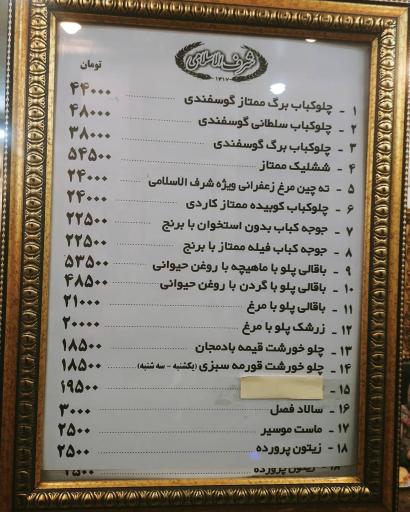 شرف الاسلامی
۱۳۱۷
تومان
۱ - چلوکباب برگ ممتاز گوسفندی ۴۴۰۰۰
۲ - چلوکباب سلطانی گوسفندی ۴۸۰۰۰
۳ - چلوکباب برگ گوسفندی ۳۸۰۰۰
۴ - ششلیک ممتاز ۵۴۵۰۰
۵ - ته چین مرغ زعفرانی ویژه شرف الاسلامی ۲۴۰۰۰
۶ - چلوکباب کوبیده ممتاز کاردی ۲۴۰۰۰
۷ - جوجه کباب بدون استخوان با برنج ۲۲۵۰۰
۸ - جوجه کباب فیله ممتاز با برنج ۲۲۵۰۰
۹ - باقالی پلو با ماهیچه با روغن حیوانی ۵۳۵۰۰
۱۰ - باقالی پلو با گردن با روغن حیوانی ۴۸۵۰۰
۱۱ - باقالی پلو با مرغ ۲۱۰۰۰
۱۲ - زرشک پلو با مرغ ۲۰۰۰۰
۱۳ - چلو خورشت قیمه بادمجان ۱۸۵۰۰
۱۴ - چلو خورشت قورمه سبزی (یکشنبه - سه شنبه) ۱۸۵۰۰
۱۵ - ۱۹۵۰۰
۱۶ - سالاد فصل ۳۰۰۰
۱۷ - ماست موسیر ۲۵۰۰
۱۸ - زیتون پرورده ۲۵۰۰